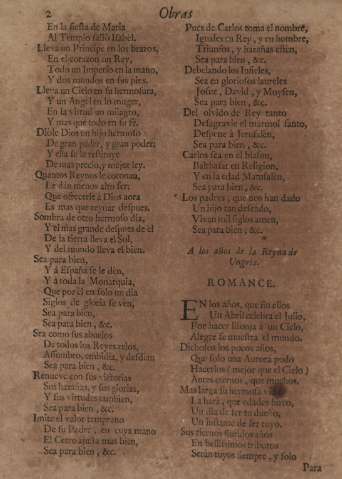 2 Obras
En la fiesta de Maria
Al Templo salio Isabel.
Lleva un Principe en los brazos,
En el corazon un Rey,
Todo un Imperio en la mano,
Y dos mundos en sus pies.
Lleva un Cielo en su hermosura,
Y un Angel en lo muger,
En la virtud un milagro,
Y mas que todo en su fè.
Diòle Dios un hijo hermoso
De gran poder, y gran poder:
Y ella le restituye
De mas precio, y mejor ley.
Quantos Reynos le coronan,
Le dàn menos alto ser:
Que ofrecerle à Dios aora
Es mas que reynar despues.
Sombra de otro hermoso dia,
Y el mas grande despues de èl
De la tierra lleva el Sol,
Y del mundo lleva el bien.
Sea para bien,
Y à España se le dèn,
Y à toda la Monarquia,
Que por èl en solo un dia
Siglos de gloria se ven,
Sea para bien,
Sea para bien, &c.
Sea como sus abuelos
De todos los Reyes zelos,
Assombro, embidia, y desden
Sea para bien, &c.
Renueve con sus vitorias
Sus hazañas, y sus glorias,
Y sus virtudes tambien,
Sea para bien, &c.
Imite el valor temprano
De su Padre, en cuya mano
El Cetro assienta mas bien,
Sea para bien, &c.
Pues de Carlos toma el nombre,
Iguales en Rey, y en hombre,
Triunfos, y hazañas estèn,
Sea para bien, &c.
Debelando los Infieles,
Sea en gloriosos laureles
Josue, David, y Moysen,
Sea para bien, &c.
Del olvido de Rey tanto
Desagravie el marmol santo,
Despeñe à Jerusalèn,
Sea para bien, &c.
Carlos sea en el blason,
Balthasar en Religion,
Y en la edad Matusalen,
Sea para bien, &c.
Los padres, que nos han dado
Un hijo tan deseado,
Vivan mil siglos amen,
Sea para bien, &c.
A los años de la Reyna de
Ungria.
ROMANCE.
EN los años, que sin ellos
Un Abril celebra el Julio,
Por hacer lisonja à un Cielo,
Alegre se muestra el mundo.
Dichosos los pocos años,
Que solo una Aurora pudo
Hacerlos (mejor que el Cielo)
Antes eternos, que muchos.
Mas larga su hermosa vida
La harà, que edades burto,
Un dia de ser tu dueño,
Un instante de ser tuyo.
Sus tiernos floridos años
En bellissimos tributos
Seràn tuyos siempre, y solo
Para